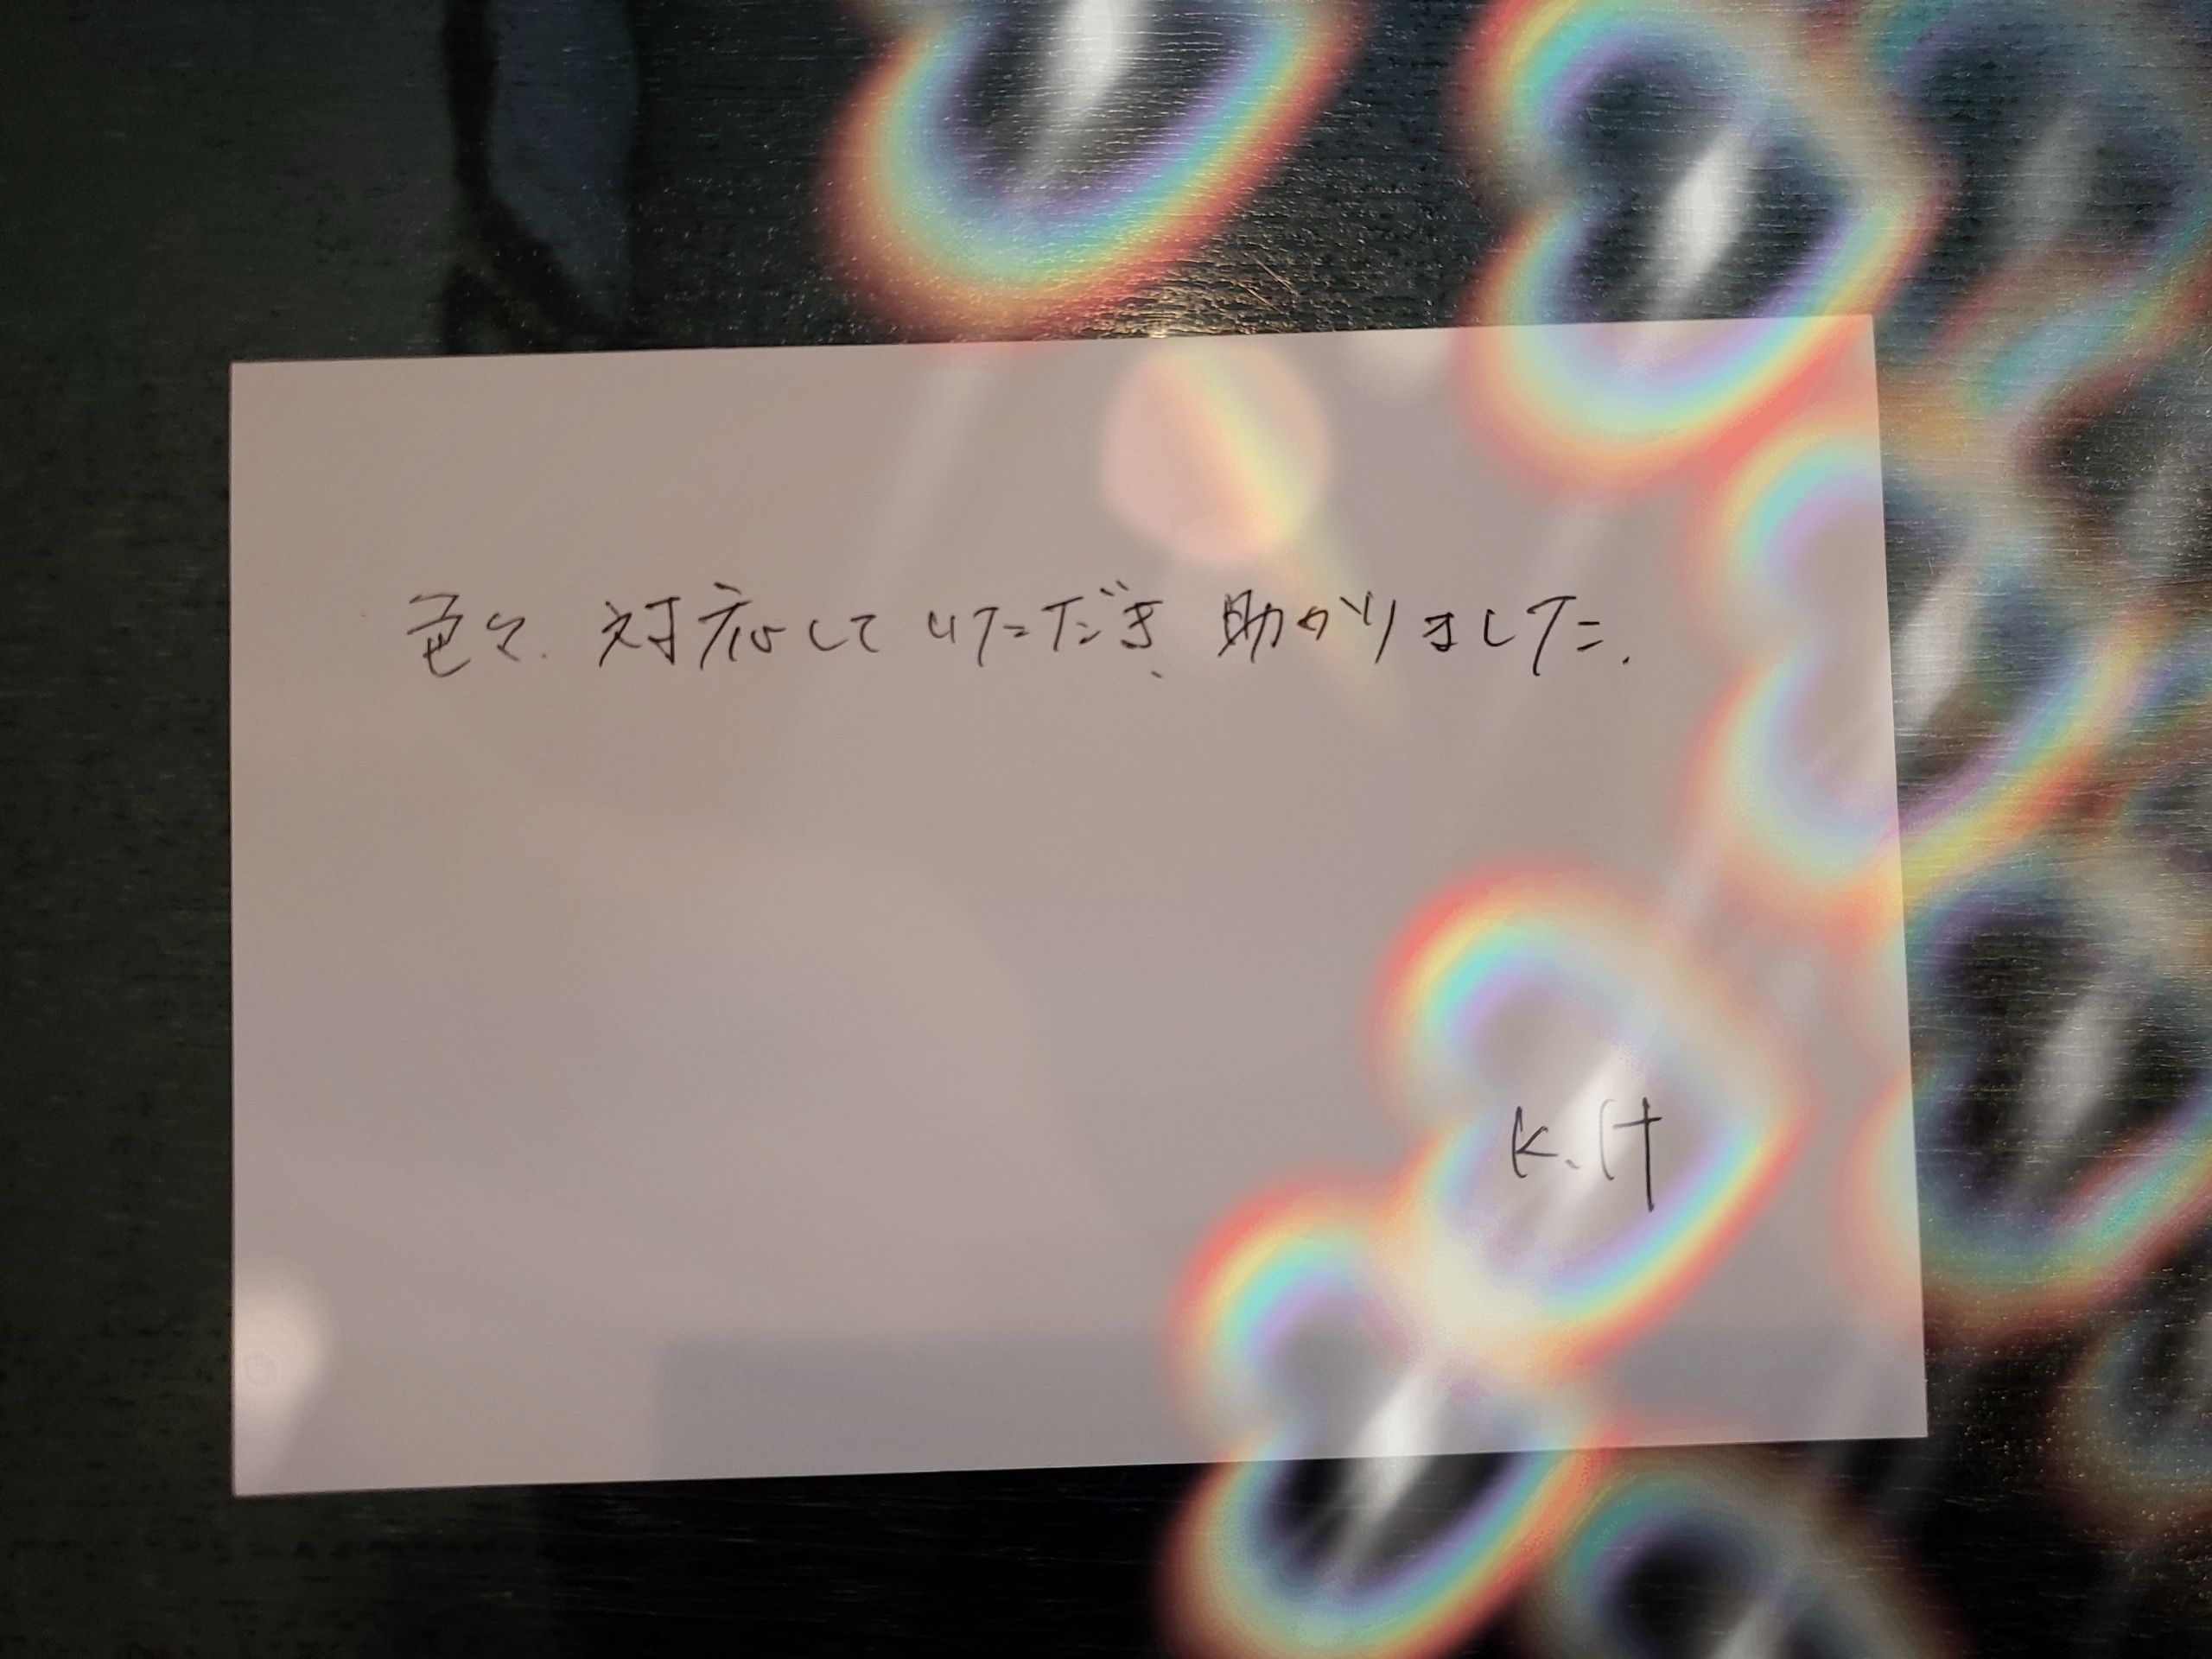 色々、対応していただき、助かりました.
K.H